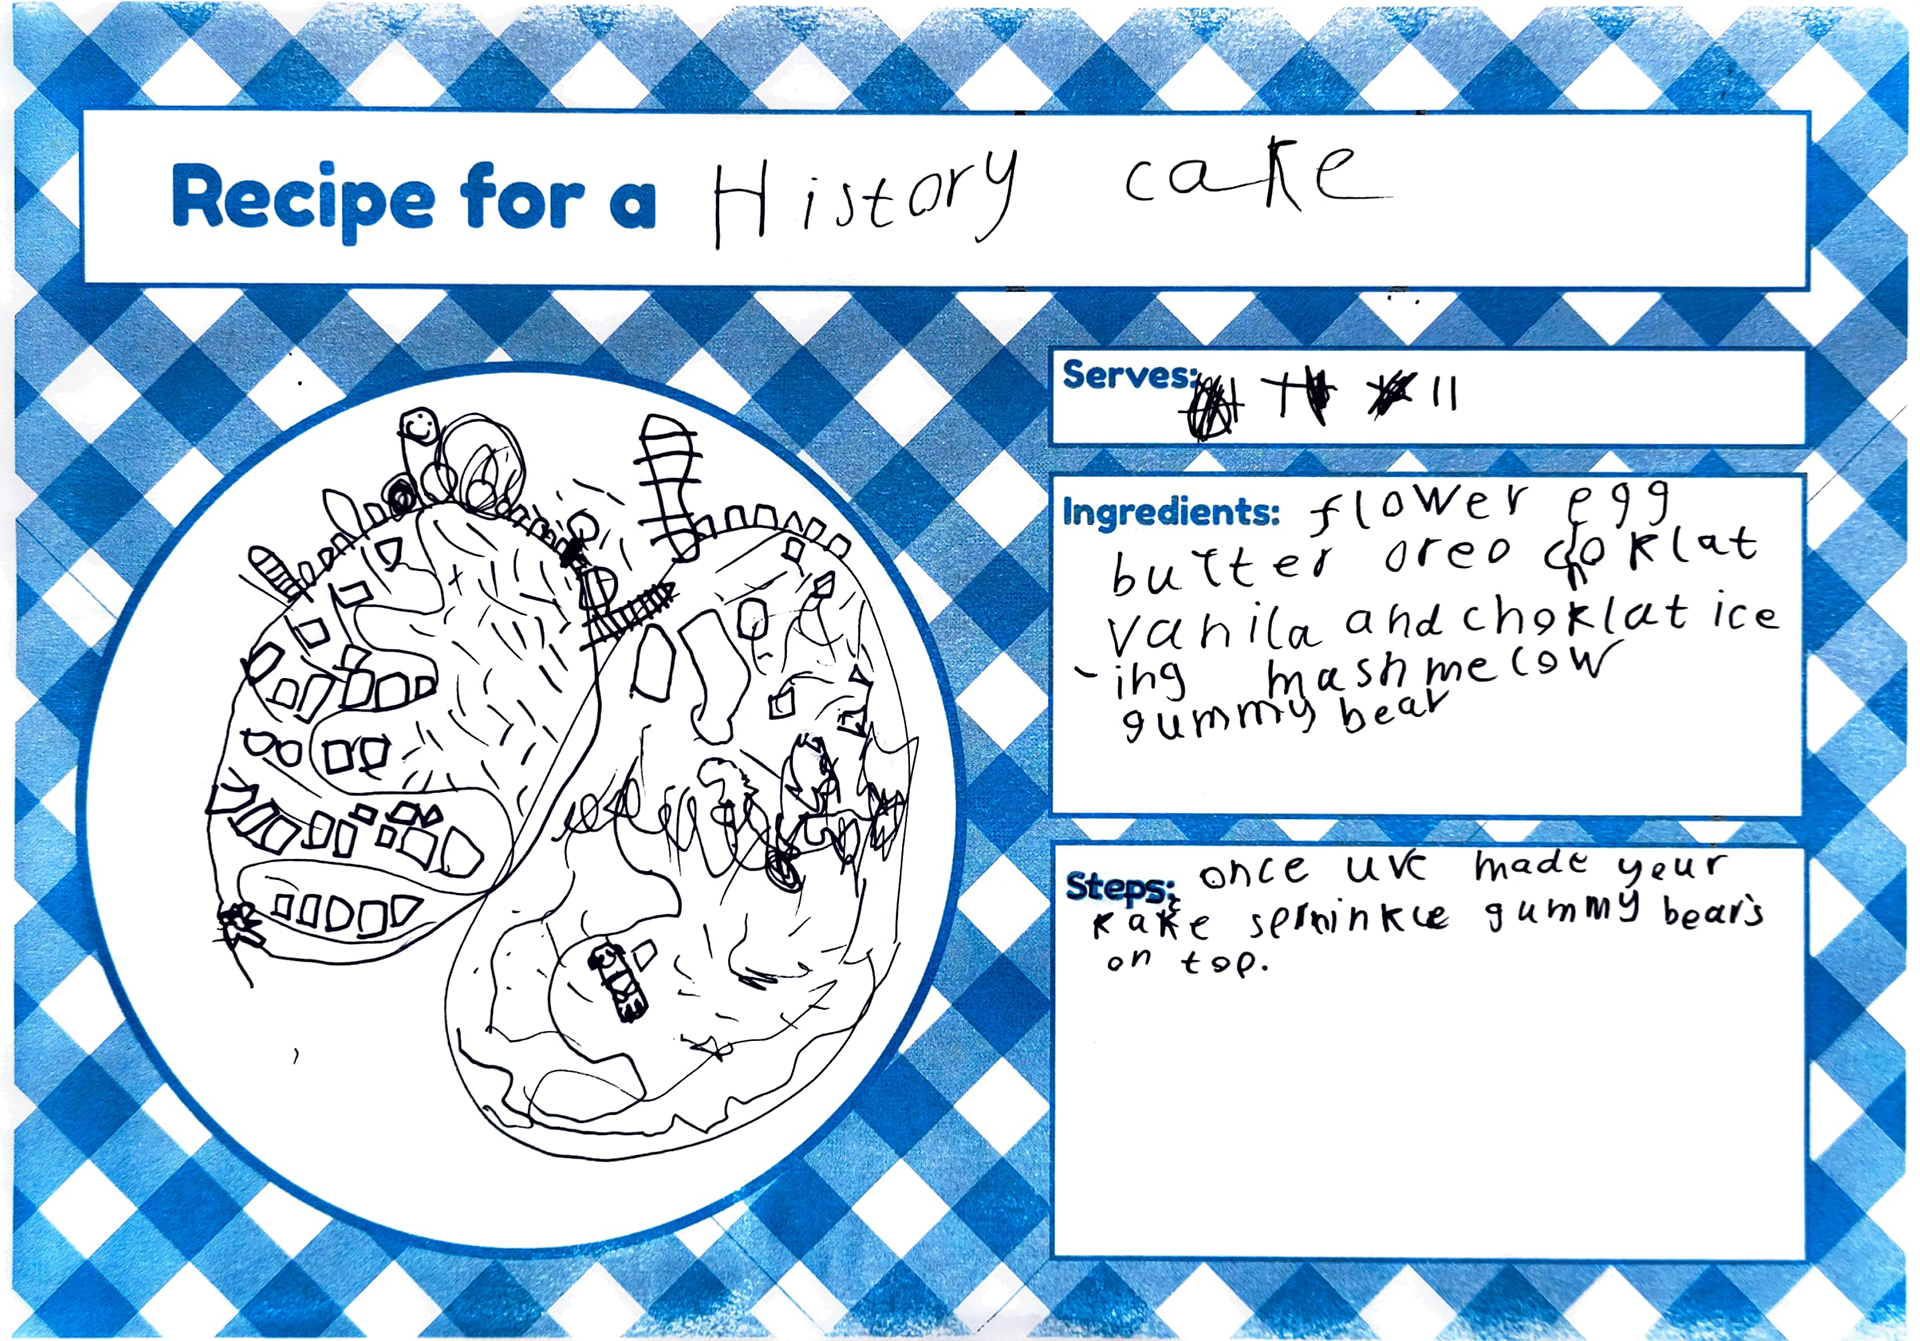 Recipe for a History cake
Serves: 11
Ingredients: flower egg
butter oreo choklat
vanila and choklat ice
-ing mashmelow
gummy bear
Steps: once uve made your
kake sprinkle gummy bears
on top.